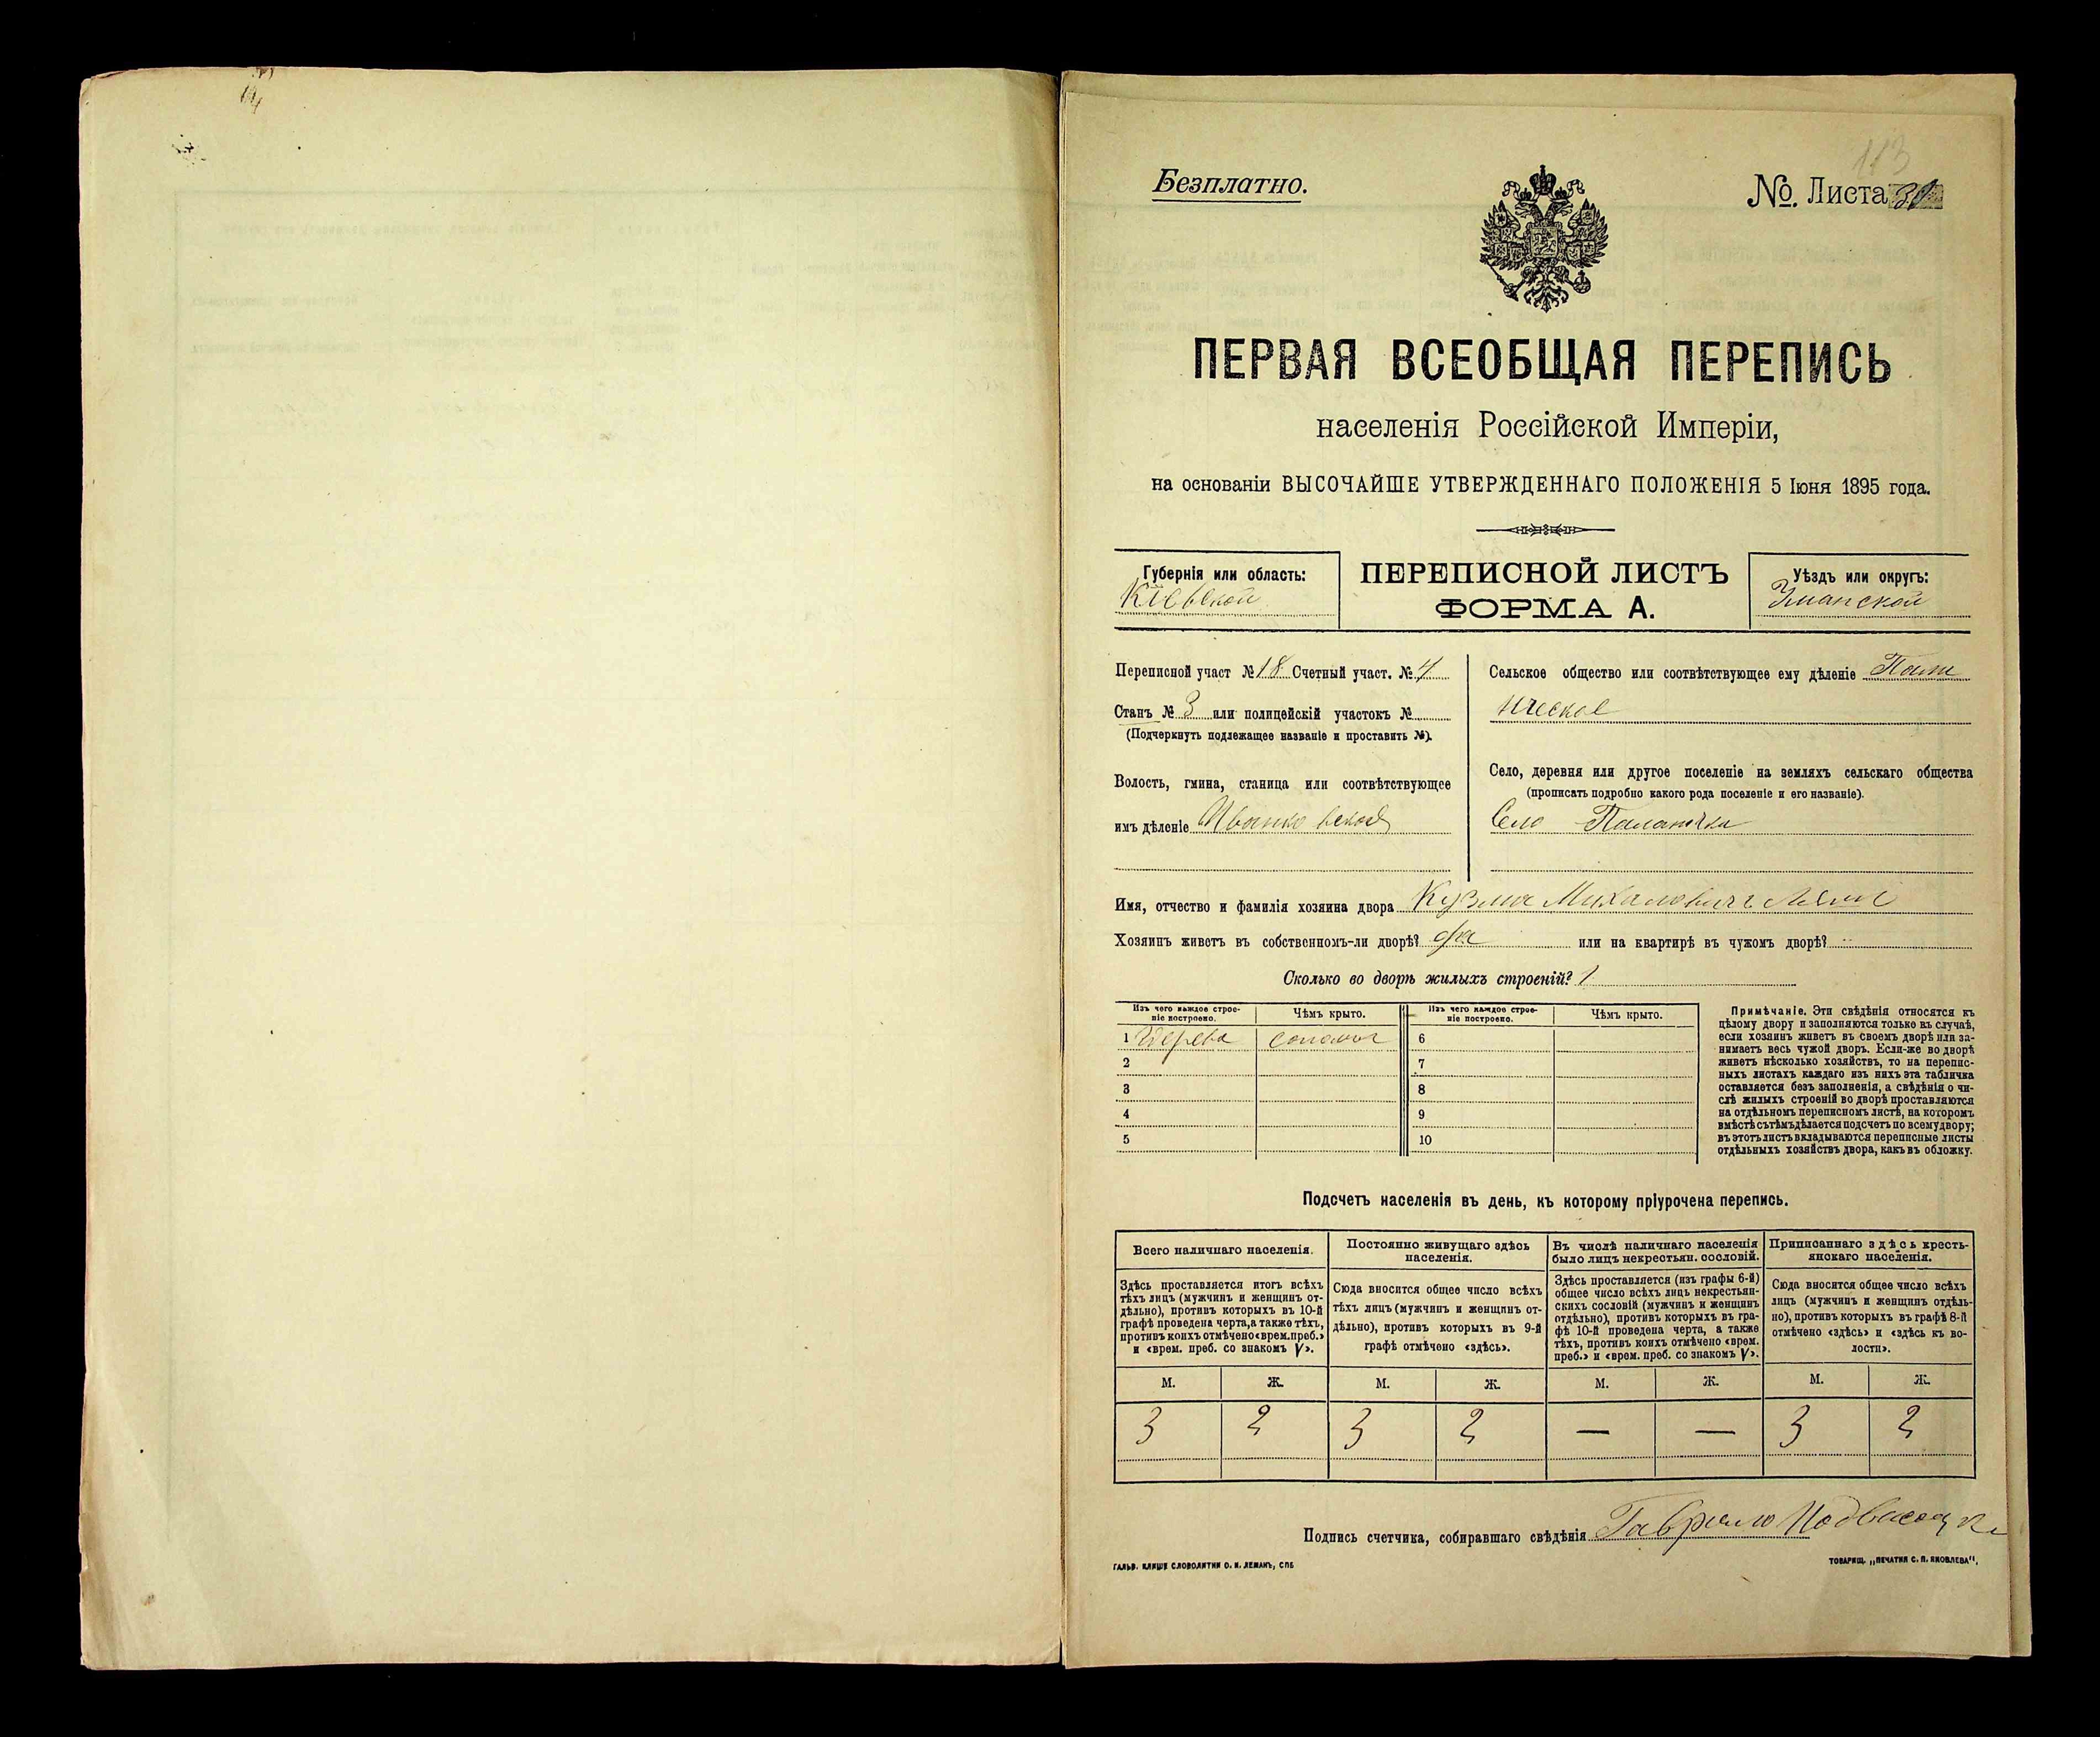 113
Безплатно.
№. Листа
ПЕРВАЯ ВСЕОБЩАЯ ПЕРЕПИСЬ
населенія Россійской Имперіи,
на основаніи ВЫСОЧАЙШЕ УТВЕРЖДЕННАГО ПОЛОЖЕНІЯ 5 Іюня 1895 года.
Губернія или область:
Кіевской
ПЕРЕПИСНОЙ ЛИСТЪ
ФОРМА А.
Уѣздъ или округъ:
Уманской
Переписной участ № 18 Счетный участ. № 4
Станъ № 3 или полицейскій участокъ №
(Подчеркнуть подлежащее названіе и проставить №).
Волость, гмина, станица или соотвѣтствующее
имъ дѣленіе Иванковской
Сельское общество или соотвѣтствующее ему дѣленіе
Село, деревня или другое поселеніе на земляхъ сельскаго общества
(прописать подробно какого рода поселеніе и его названіе).
Село Паланочка
Имя, отчество и фамилія хозяина двора Кузма
Хозяинъ живетъ въ собственномъ-ли дворѣ? да или на квартирѣ въ чужомъ дворѣ?
Сколько во дворѣ жилыхъ строеній? 1
Изъ чего каждое строеніе построено. Чѣмъ крыто. Изъ чего каждое строеніе построено. Чѣмъ крыто.
1 Дерева соломою 6
2 7
3 8
4 9
5 10
Примѣчаніе. Эти свѣдѣнія относятся къ
цѣлому двору и заполняются только въ случаѣ,
если хозяинъ живетъ въ своемъ дворѣ или за-
нимаетъ весь чужой дворъ. Если-же во дворѣ
живетъ нѣсколько хозяйствъ, то на перепис-
ныхъ листахъ каждаго изъ нихъ эта табличка
оставляется безъ заполненія, а свѣдѣнія о чи-
слѣ жилыхъ строеній во дворѣ проставляются
на отдѣльномъ переписномъ листѣ, на которомъ
вмѣстѣ съ тѣмъ дѣлается подсчетъ по всему двору;
въ этотъ листъ вкладываются переписные листы
отдѣльныхъ хозяйствъ двора, какъ въ обложку.
Подсчетъ населенія въ день, къ которому пріурочена перепись.
Всего наличнаго населенія.
Здѣсь проставляется итогъ всѣхъ
тѣхъ лицъ (мужчинъ и женщинъ от-
дѣльно), противъ которыхъ въ 10-й
графѣ проведена черта, а также тѣхъ,
противъ коихъ отмѣчено «врем. преб.»
и «врем. преб. со знакомъ V».
Постоянно живущаго здѣсь
населенія.
Сюда вносится общее число всѣхъ
тѣхъ лицъ (мужчинъ и женщинъ от-
дѣльно), противъ которыхъ въ 9-й
графѣ отмѣчено «здѣсь».
Въ числѣ наличнаго населенія
было лицъ некрестьян. сословій.
Здѣсь проставляется (изъ графы 6-й)
общее число всѣхъ лицъ некрестьян-
скихъ сословій (мужчинъ и женщинъ
отдѣльно), противъ которыхъ въ гра-
фѣ 10-й проведена черта, а также
тѣхъ, противъ коихъ отмѣчено «врем.
преб.» и «врем. преб. со знакомъ V».
Приписаннаго здѣсь кресть-
янскаго населенія.
Сюда вносится общее число всѣхъ
лицъ (мужчинъ и женщинъ отдѣль-
но), противъ которыхъ въ графѣ 8-й
отмѣчено «здѣсь» и «здѣсь къ во-
лости».
М. Ж. М. Ж. М. Ж. М. Ж.
3 2 3 2 — — 3 2
Подпись счетчика, собиравшаго свѣдѣнія Гаврило
ГАЛЬВ. КЛИШЕ СЛОВОЛИТНИ О. И. ЛЕМАНЪ, СПБ
ТОВАРИЩ. „ПЕЧАТНЯ С. П. ЯКОВЛЕВА“.